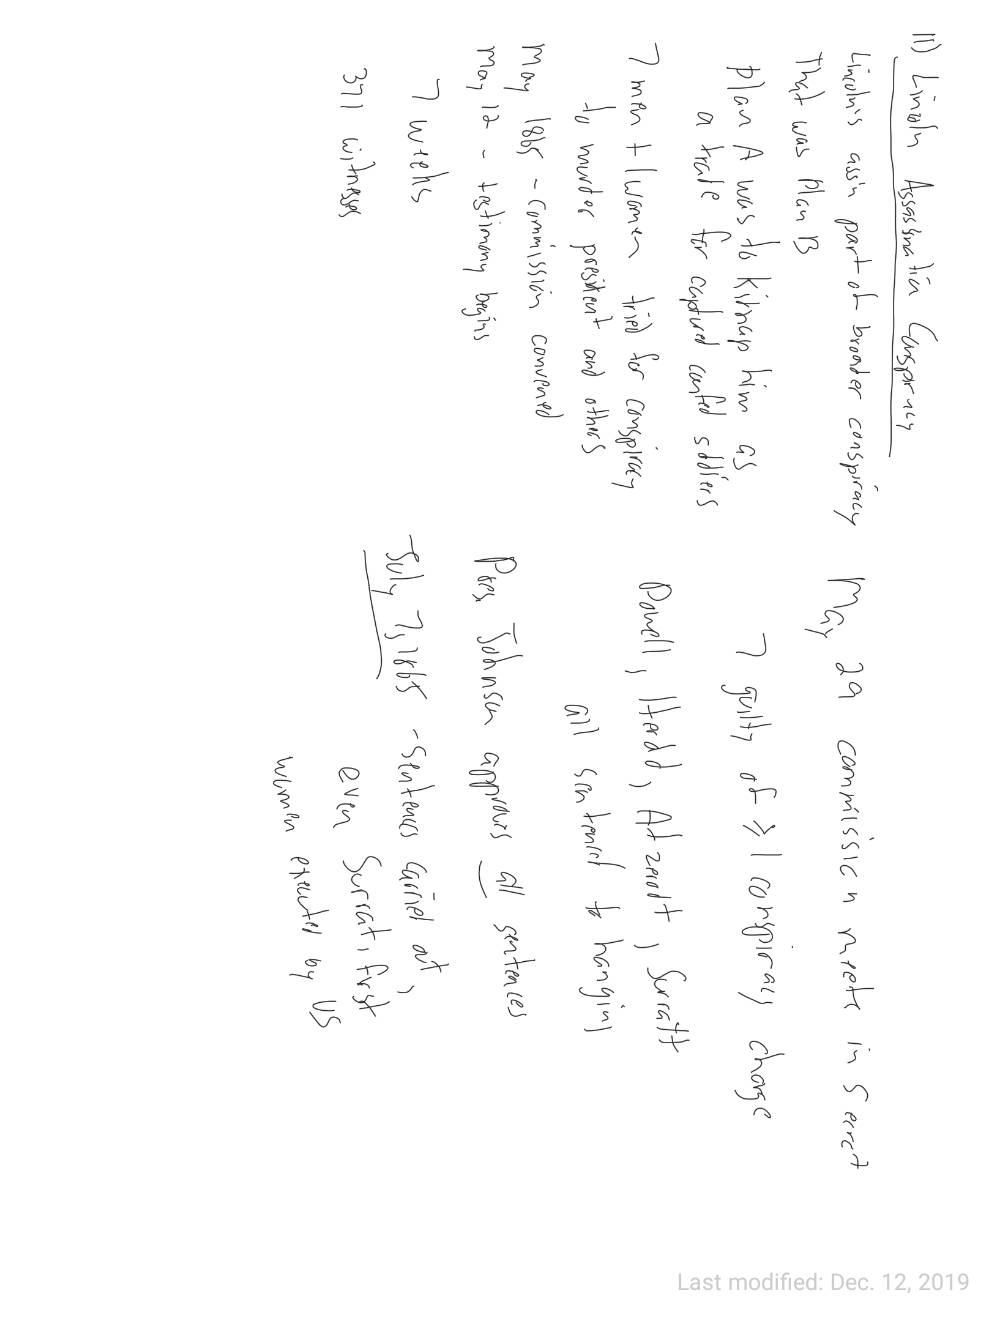 11) Lincoln Assassination Conspiracy
Lincoln's ass'n part of broader conspiracy
That was Plan B
Plan A was to kidnap him as
a trade for captured confed soldiers
7 men + 1 women tried for conspiracy
to murder president and others
May 1865 - commission convened
May 12 - testimony begins
7 weeks
371 witnesses
May 29 commission meets in secret
7 guilty of ≥ 1 conspiracy charge
Powell, Herold, Atzerodt, Surratt
all sentenced to hanging
Pres. Johnson approves all sentences
July 7, 1865 - sentences carried out,
even Surrat, first
women executed by US
Last modified: Dec. 12, 2019